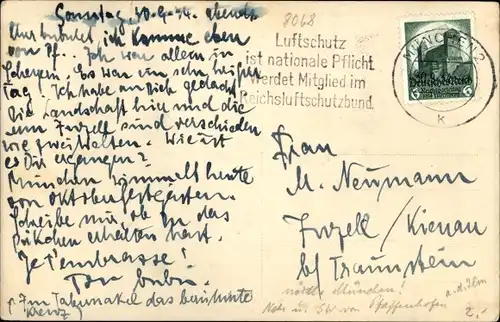 Sonntag, 30.9.34. abends
ich komme eben
von Pf.. Ich war allein in
Scheyern. Es war ein sehr heißer
Tag. Ich habe an Dich gedacht.
Die Landschaft hier und die
um Inzell sind verschieden
wie zwei Welten. Wie ist
es Dir ergangen?
München wimmelt heute
von Oktoberfestgästen.
Schreibe mir, ob Du das
Päckchen erhalten hast.
Je t'embrasse!
Im Tabernakel das berühmte
Kreuz
8068
Luftschutz
ist nationale Pflicht
Werdet Mitglied im
Reichsluftschutzbund
MÜNCHEN 2
K
6 6
Frau
M. Neumann
Inzell / Kienau
b/ Traunstein
nördl. München!
Pfaffenhofen
a.d. Ilm
2,-